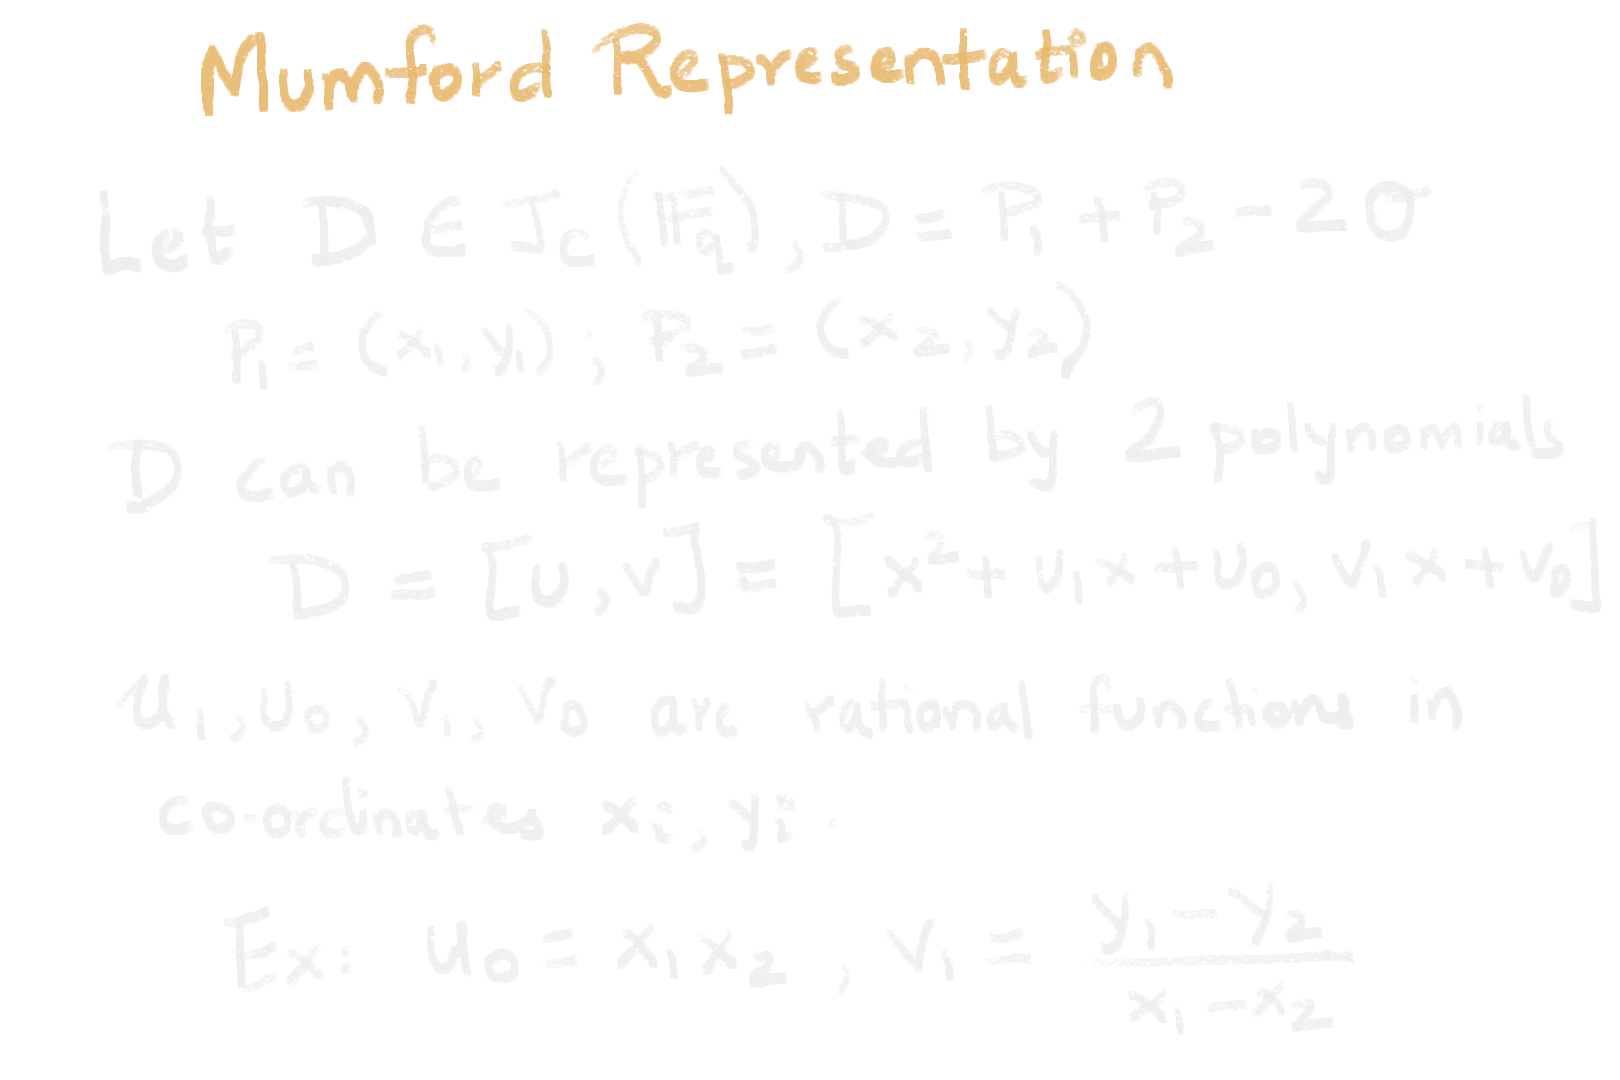 Mumford Representation
Let D ∈ J_C(𝔽_q), D = P₁ + P₂ - 2O
P₁ = (x₁, y₁) ; P₂ = (x₂, y₂)
D can be represented by 2 polynomials
D = [u, v] = [x² + u₁x + u₀, v₁x + v₀]
u₁, u₀, v₁, v₀ are rational functions in
co-ordinates xᵢ, yᵢ.
Ex: u₀ = x₁x₂ , v₁ = (y₁ - y₂)/(x₁ - x₂)